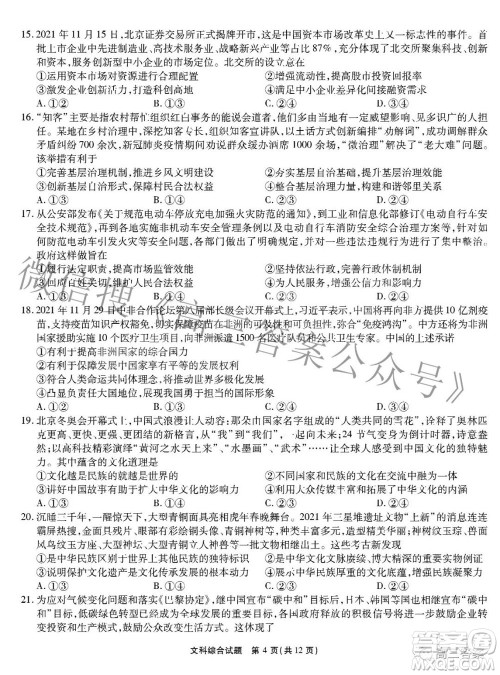 15. 2021 年 11 月 15 日，北京证券交易所正式揭牌开市，这是中国资本市场改革史上又一标志性的事件。首
批上市企业中先进制造业、高技术服务业、战略新兴产业等占比 87%，充分体现了北交所聚集科技、
创新型中小企业的市场定位。北交所
①运用资本市场对资源进行调节
②增强流动性，提高股市投资回报
③激发企业创新活力，打造科创高地
④满足中小企业差异化的融资需求
A. ①② B. ①③ C. ②④ D. ③④
16. “知客”主要是指农村帮忙组织红白事务的能说会道者，他们多由当地有一定威望影响、见多识广的人担
任。某地在乡村治理中，探索建立知客宣讲队，以土话方式创新编排“劝解词”，成功调解群众
矛盾纠纷 700 余次，新冠肺炎疫情期间劝说群众缓办酒席 1000 余场，“微治理”解决了“老大难”问题。
该举措有利于
①完善基层治理机制
②倡导文明新风，推动乡风文明建设
③创新基层治理形式，保障村民合法权益
④完善基层治理体系，增强基层组织公信力
A. ①② B. ①③ C. ②④ D. ③④
17. 从公安部发布《关于规范电动车停放充电加强火灾防范的通告》，到工业和信息化部修订《电动自行车安
全技术规范》，再到各地实施非机动车安全管理条例以及电动自行车消防安全综合治理方案等，针对
如何防范电动车引发火灾等万众瞩目的问题，
政府这样做旨在
①履行法定职责，提高市场监管效能
②坚持依法行政，
③回应百姓关切，保障人民生命财产安全
④为人民服务，增强政府公信力和影响力
A. ①② B. ①③ C. ②④ D. ③④
18. 2021 年 11 月 29 日中非合作论坛第八届部长级会议开幕式上，习近平表示，中国将再向非方提供 10 亿剂疫
苗，支持疫苗知识产权豁免，切实保障疫苗在非洲的可及性和可负担性，弥合“免疫鸿沟”。中方还将为非洲
国家援助实施 10 个医疗卫生项目，向非洲派遣 1500 名医疗队员和公共卫生专家。中国的上述承诺
①有利于提高非洲国家的综合国力
②有利于推动世界发展中国家享有平等的发展权
③顺应了世界多极化、经济全球化的发展趋势
④凸显了中国勇于担当的国际形象
A. ①② B. ①③ C. ②④ D. ③④
19. 北京冬奥会开幕式上，中国式浪漫让人动容：那朵由国家名字组成的“人类共同的雪花”，诠释了奥林匹
克更高、更快、更强、更团结的精神，从“我”到“我们”，一起向未来；24 节气变身为倒计时器，诗意盎
然；空灵的科技感演绎“黄河之水天上来”、“水墨画”、“武术”……让全球人感受到中国文化的独特魅
力。其中蕴含的文化道理是
①文化越是民族的，越是世界的
②不同国家和民族的文化在交流中融通
③讲好中华文化故事，有助于扩大中华文化的影响
④中国文化引领世界文化发展方向
A. ①② B. ①③ C. ②④ D. ③④
20. 沉睡三千年，一醒惊天下，大型青铜面具亮相虎年春晚舞台。2021 年三星堆遗址文物“上新”的消息连连
霸屏热搜，黄金面具残片、铜顶尊跪坐人像、眼部有彩绘铜头像、青铜神树、神树纹玉琮、兽面
凤鸟纹玉方座、大型神坛、铜巨型神兽等稀奇文物重见天日。这些考古新发现
①是中华民族别于世界其他民族的独特标识
②是中华文化源远流长、博大精深的历史见证
③是中华民族创造的宝贵文化财富
④为延续中华文化提供了精神动力
A. ①② B. ①④ C. ②③ D. ③④
21. 为应对气候变化问题和落实《巴黎协定》，中国宣布“碳中和”目标前后，日本、韩国等也宣布“碳中和”目
标，“碳中和”成为全球发展新前景。各国政府释放的积极信号将有助于进一步鼓励企业转
变投资和生产模式，这体现了
文科综合试题 第 4 页（共 12 页）
微信搜《高三答案公众号》